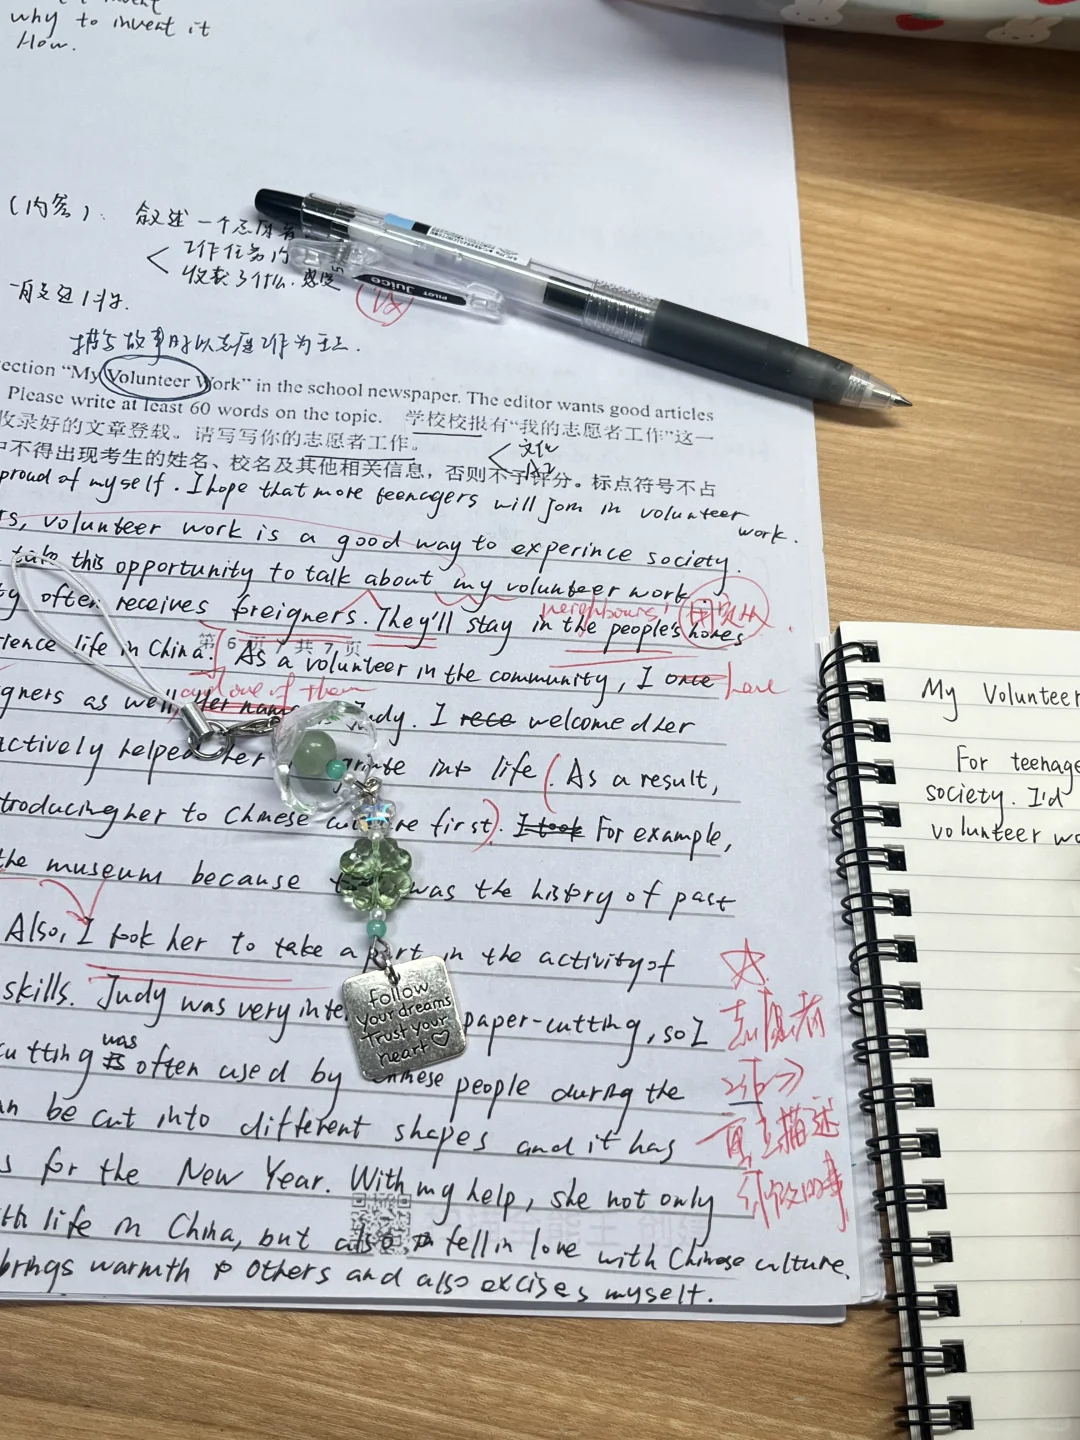 why to invent it
How.
(内容). 叙述一个志愿者
工作任务内
收获了什么.感受
Juice
PILOT
描写故事时以志愿工作为主.
ection “My Volunteer Work” in the school newspaper. The editor wants good articles
Please write at least 60 words on the topic. 学校校报有“我的志愿者工作”这一
收录好的文章登载。请写写你的志愿者工作。
文化
中不得出现考生的姓名、校名及其他相关信息，否则不予评分。标点符号不占
proud of myself. I hope that more teenagers will join in volunteer
work.
rs, volunteer work is a good way to experince society.
take this opportunity to talk about my volunteer work
neighbours'
often receives foreigners. They'll stay in the people's homes
第 6 页 共 7 页
rience life in China. As a volunteer in the community, I once have
and one of them
igners as well, Her name Judy. I rece welcomed her
actively helped her into life. As a result,
troducing her to Chinese culture first. I took For example,
the museum because was the history of past
Also, I took her to take a part in the activity of
skills. Judy was very inte paper-cutting, so I
志愿者
was
cutting is often used by Chinese people during the
an be cut into different shapes and it has
描述
s for the New Year. With my help, she not only
ith life in China, but also fell in love with Chinese culture.
brings warmth to others and also excises myself.
Follow
your dreams
Trust your
heart
My Volunteer
For teenage
society. I'd
volunteer wo